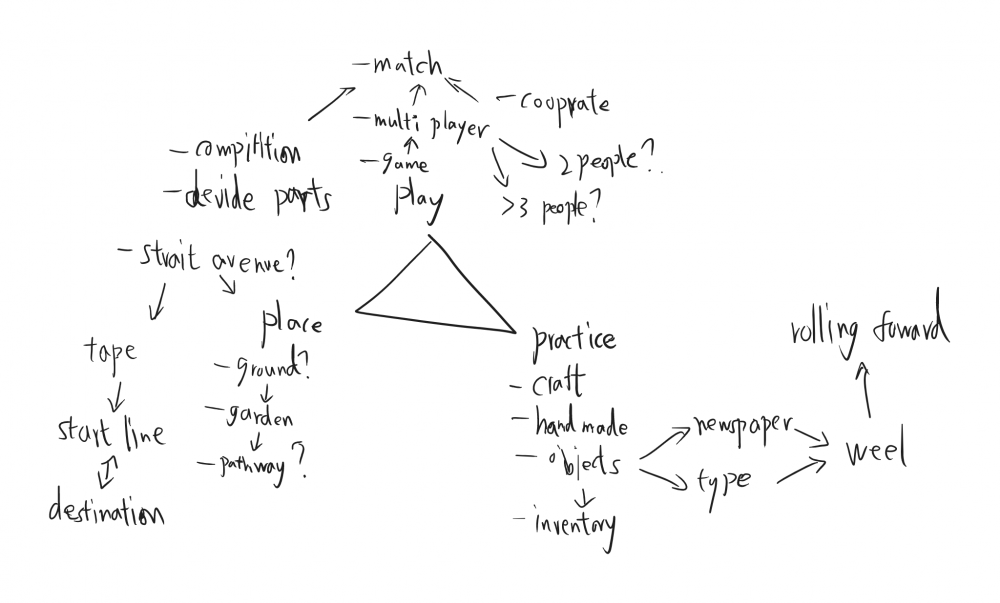 - match
- cooprate
- multi player
- compitition
- game
2 people?
- devide parts
play
>3 people?
- strait avenue?
place
tape
- ground?
start line
- garden
- pathway?
destination
practice
- craft
- hand made
- objects
- inventory
newspaper
type
weel
rolling foward